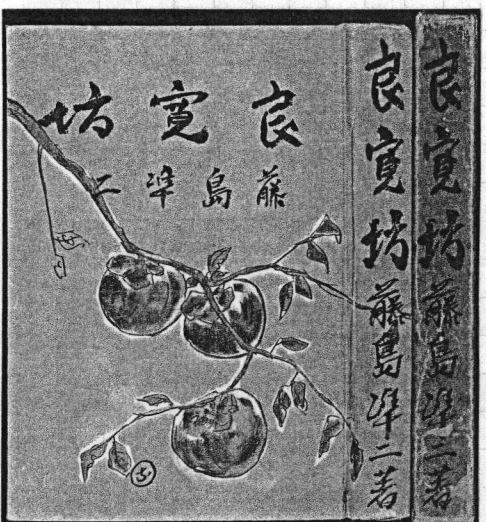 良寛坊
藤島準二
良寛坊 藤島準二著
良寛坊 藤島準二著